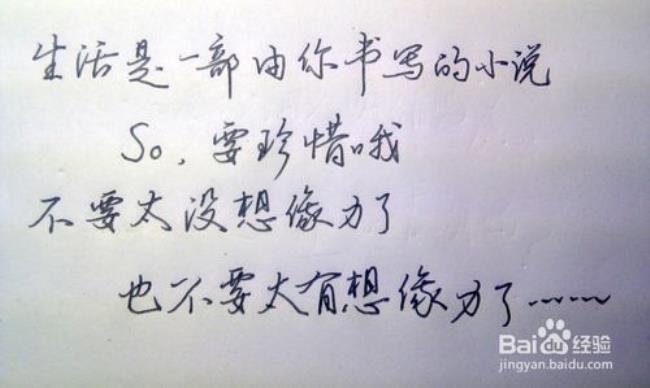 生活是一部由你书写的小说
So, 要珍惜哦
不要太没想像力了
也不要太有想像力了……
Baidu经验
jingyan.baidu.com